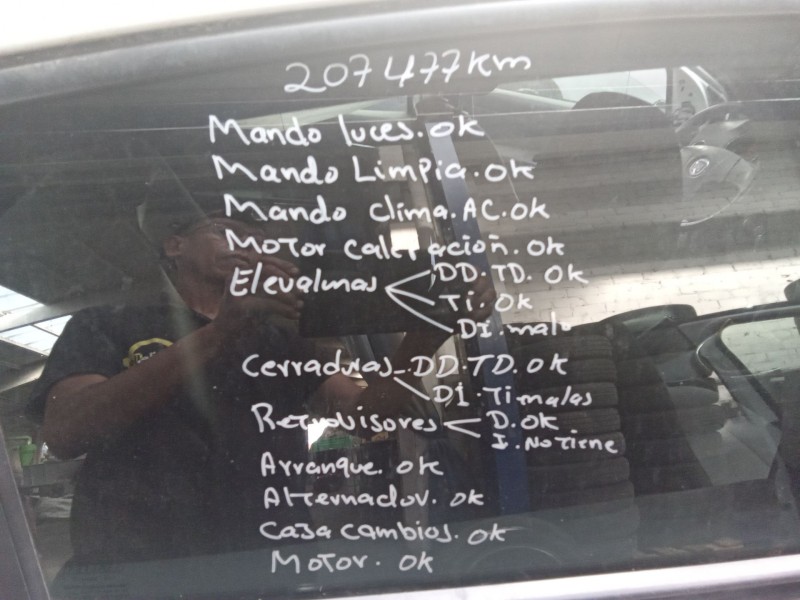 207477km
Mando luces.ok
Mando Limpia.ok
Mando clima.AC.ok
Motor calefacción.ok
Elevalunas DD.TD. OK
Ti.OK
DI.malo
Cerraduras DD.TD.OK
DI.Ti malas
Retrovisores D.OK
I.No Tiene
Arranque. ok
Alternador. ok
Caja cambios.ok
Motor. ok